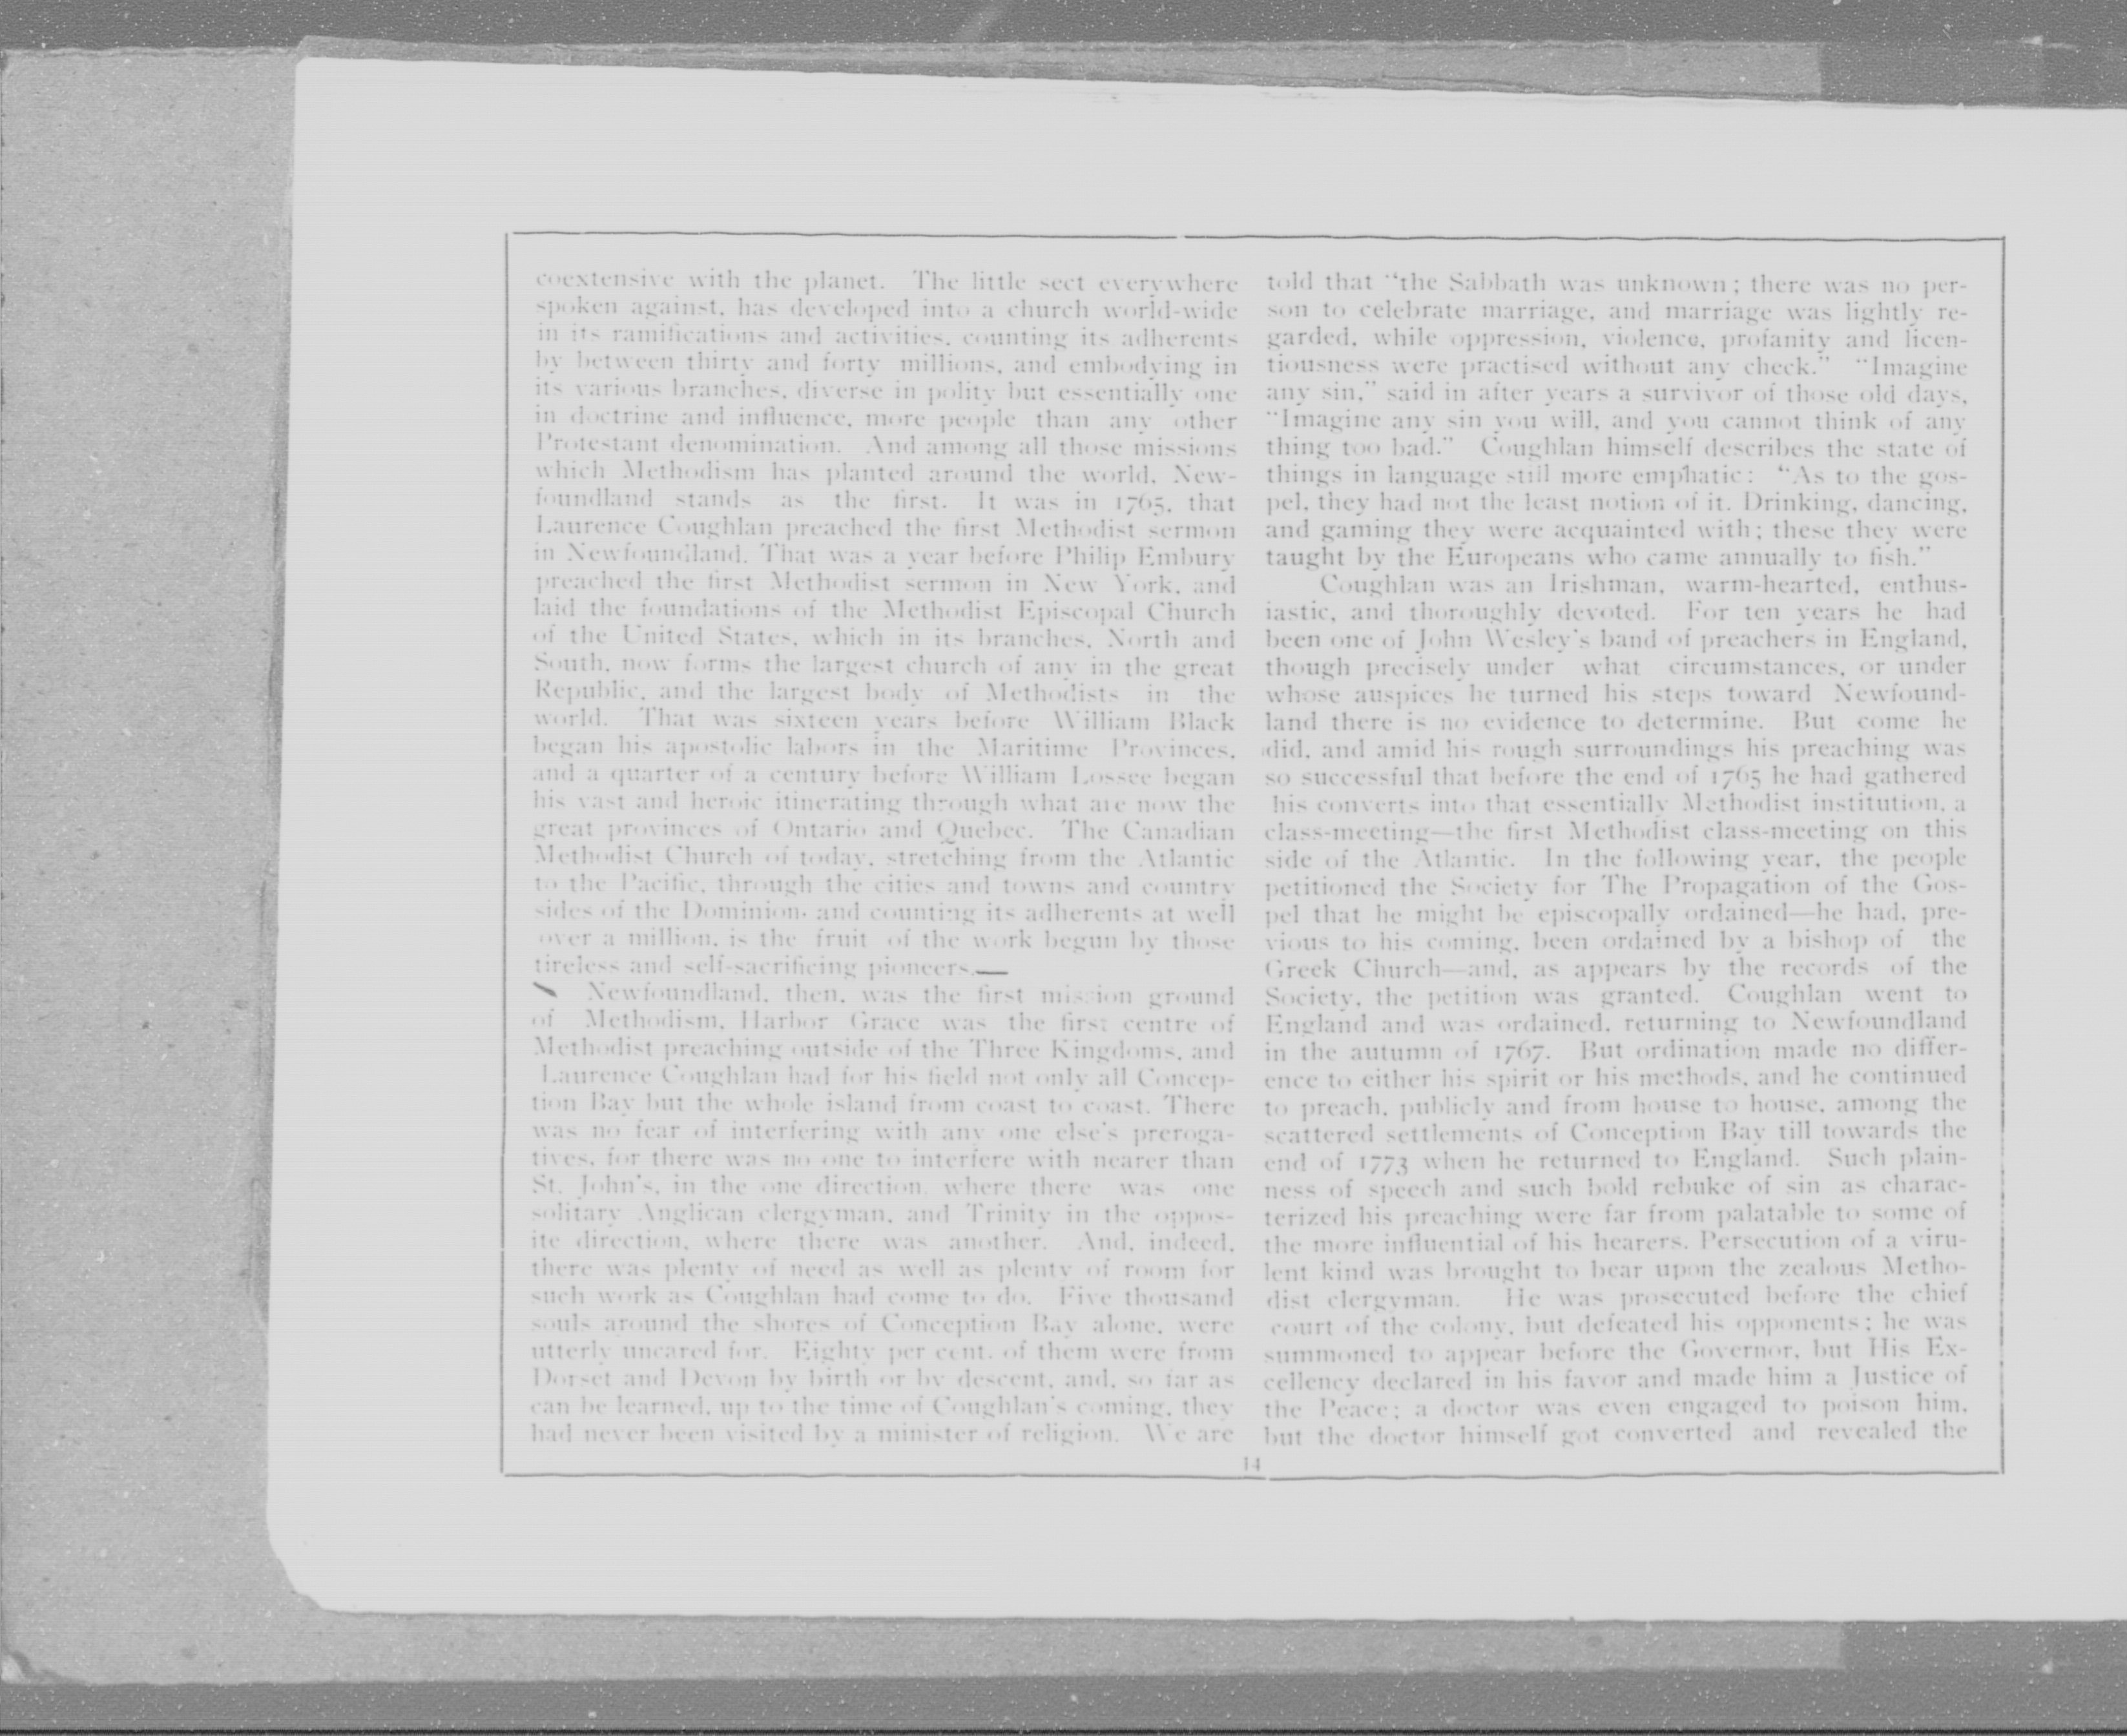 coextensive with the planet. The little sect everywhere
spoken against, has developed into a church world-wide
in its ramifications and activities, counting its adherents
by between thirty and forty millions, and embodying in
its various branches, diverse in polity but essentially one
in doctrine and influence, more people than any other
Protestant denomination. And among all those missions
which Methodism has planted around the world, New-
foundland stands as the first. It was in 1765, that
Laurence Coughlan preached the first Methodist sermon
in Newfoundland. That was a year before Philip Embury
preached the first Methodist sermon in New York, and
laid the foundations of the Methodist Episcopal Church
of the United States, which in its branches, North and
South, now forms the largest church of any in the great
Republic, and the largest body of Methodists in the
world. That was sixteen years before William Black
began his apostolic labors in the Maritime Provinces,
and a quarter of a century before William Lossee began
his vast and heroic itinerating through what are now the
great provinces of Ontario and Quebec. The Canadian
Methodist Church of today, stretching from the Atlantic
to the Pacific, through the cities and towns and country
sides of the Dominion, and counting its adherents at well
over a million, is the fruit of the work begun by those
tireless and self-sacrificing pioneers.
Newfoundland, then, was the first mission ground
of Methodism, Harbor Grace was the first centre of
Methodist preaching outside of the Three Kingdoms, and
Laurence Coughlan had for his field not only all Concep-
tion Bay but the whole island from coast to coast. There
was no fear of interfering with any one else's preroga-
tives, for there was no one to interfere with nearer than
St. John's, in the one direction, where there was one
solitary Anglican clergyman, and Trinity in the oppos-
ite direction, where there was another. And, indeed,
there was plenty of need as well as plenty of room for
such work as Coughlan had come to do. Five thousand
souls around the shores of Conception Bay alone, were
utterly uncared for. Eighty per cent. of them were from
Dorset and Devon by birth or by descent, and, so far as
can be learned, up to the time of Coughlan's coming, they
had never been visited by a minister of religion. We are
told that "the Sabbath was unknown; there was no per-
son to celebrate marriage, and marriage was lightly re-
garded, while oppression, violence, profanity and licen-
tiousness were practised without any check." "Imagine
any sin," said in after years a survivor of those old days,
"Imagine any sin you will, and you cannot think of any
thing too bad." Coughlan himself describes the state of
things in language still more emphatic: "As to the gos-
pel, they had not the least notion of it. Drinking, dancing,
and gaming they were acquainted with; these they were
taught by the Europeans who came annually to fish."
Coughlan was an Irishman, warm-hearted, enthus-
iastic, and thoroughly devoted. For ten years he had
been one of John Wesley's band of preachers in England,
though precisely under what circumstances, or under
whose auspices he turned his steps toward Newfound-
land there is no evidence to determine. But come he
did, and amid his rough surroundings his preaching was
so successful that before the end of 1765 he had gathered
his converts into that essentially Methodist institution, a
class-meeting—the first Methodist class-meeting on this
side of the Atlantic. In the following year, the people
petitioned the Society for The Propagation of the Gos-
pel that he might be episcopally ordained—he had, pre-
vious to his coming, been ordained by a bishop of the
Greek Church—and, as appears by the records of the
Society, the petition was granted. Coughlan went to
England and was ordained, returning to Newfoundland
in the autumn of 1767. But ordination made no differ-
ence to either his spirit or his methods, and he continued
to preach, publicly and from house to house, among the
scattered settlements of Conception Bay till towards the
end of 1773 when he returned to England. Such plain-
ness of speech and such bold rebuke of sin as charac-
terized his preaching were far from palatable to some of
the more influential of his hearers. Persecution of a viru-
lent kind was brought to bear upon the zealous Metho-
dist clergyman. He was prosecuted before the chief
court of the colony, but defeated his opponents; he was
summoned to appear before the Governor, but His Ex-
cellency declared in his favor and made him a Justice of
the Peace; a doctor was even engaged to poison him,
but the doctor himself got converted and revealed the
14